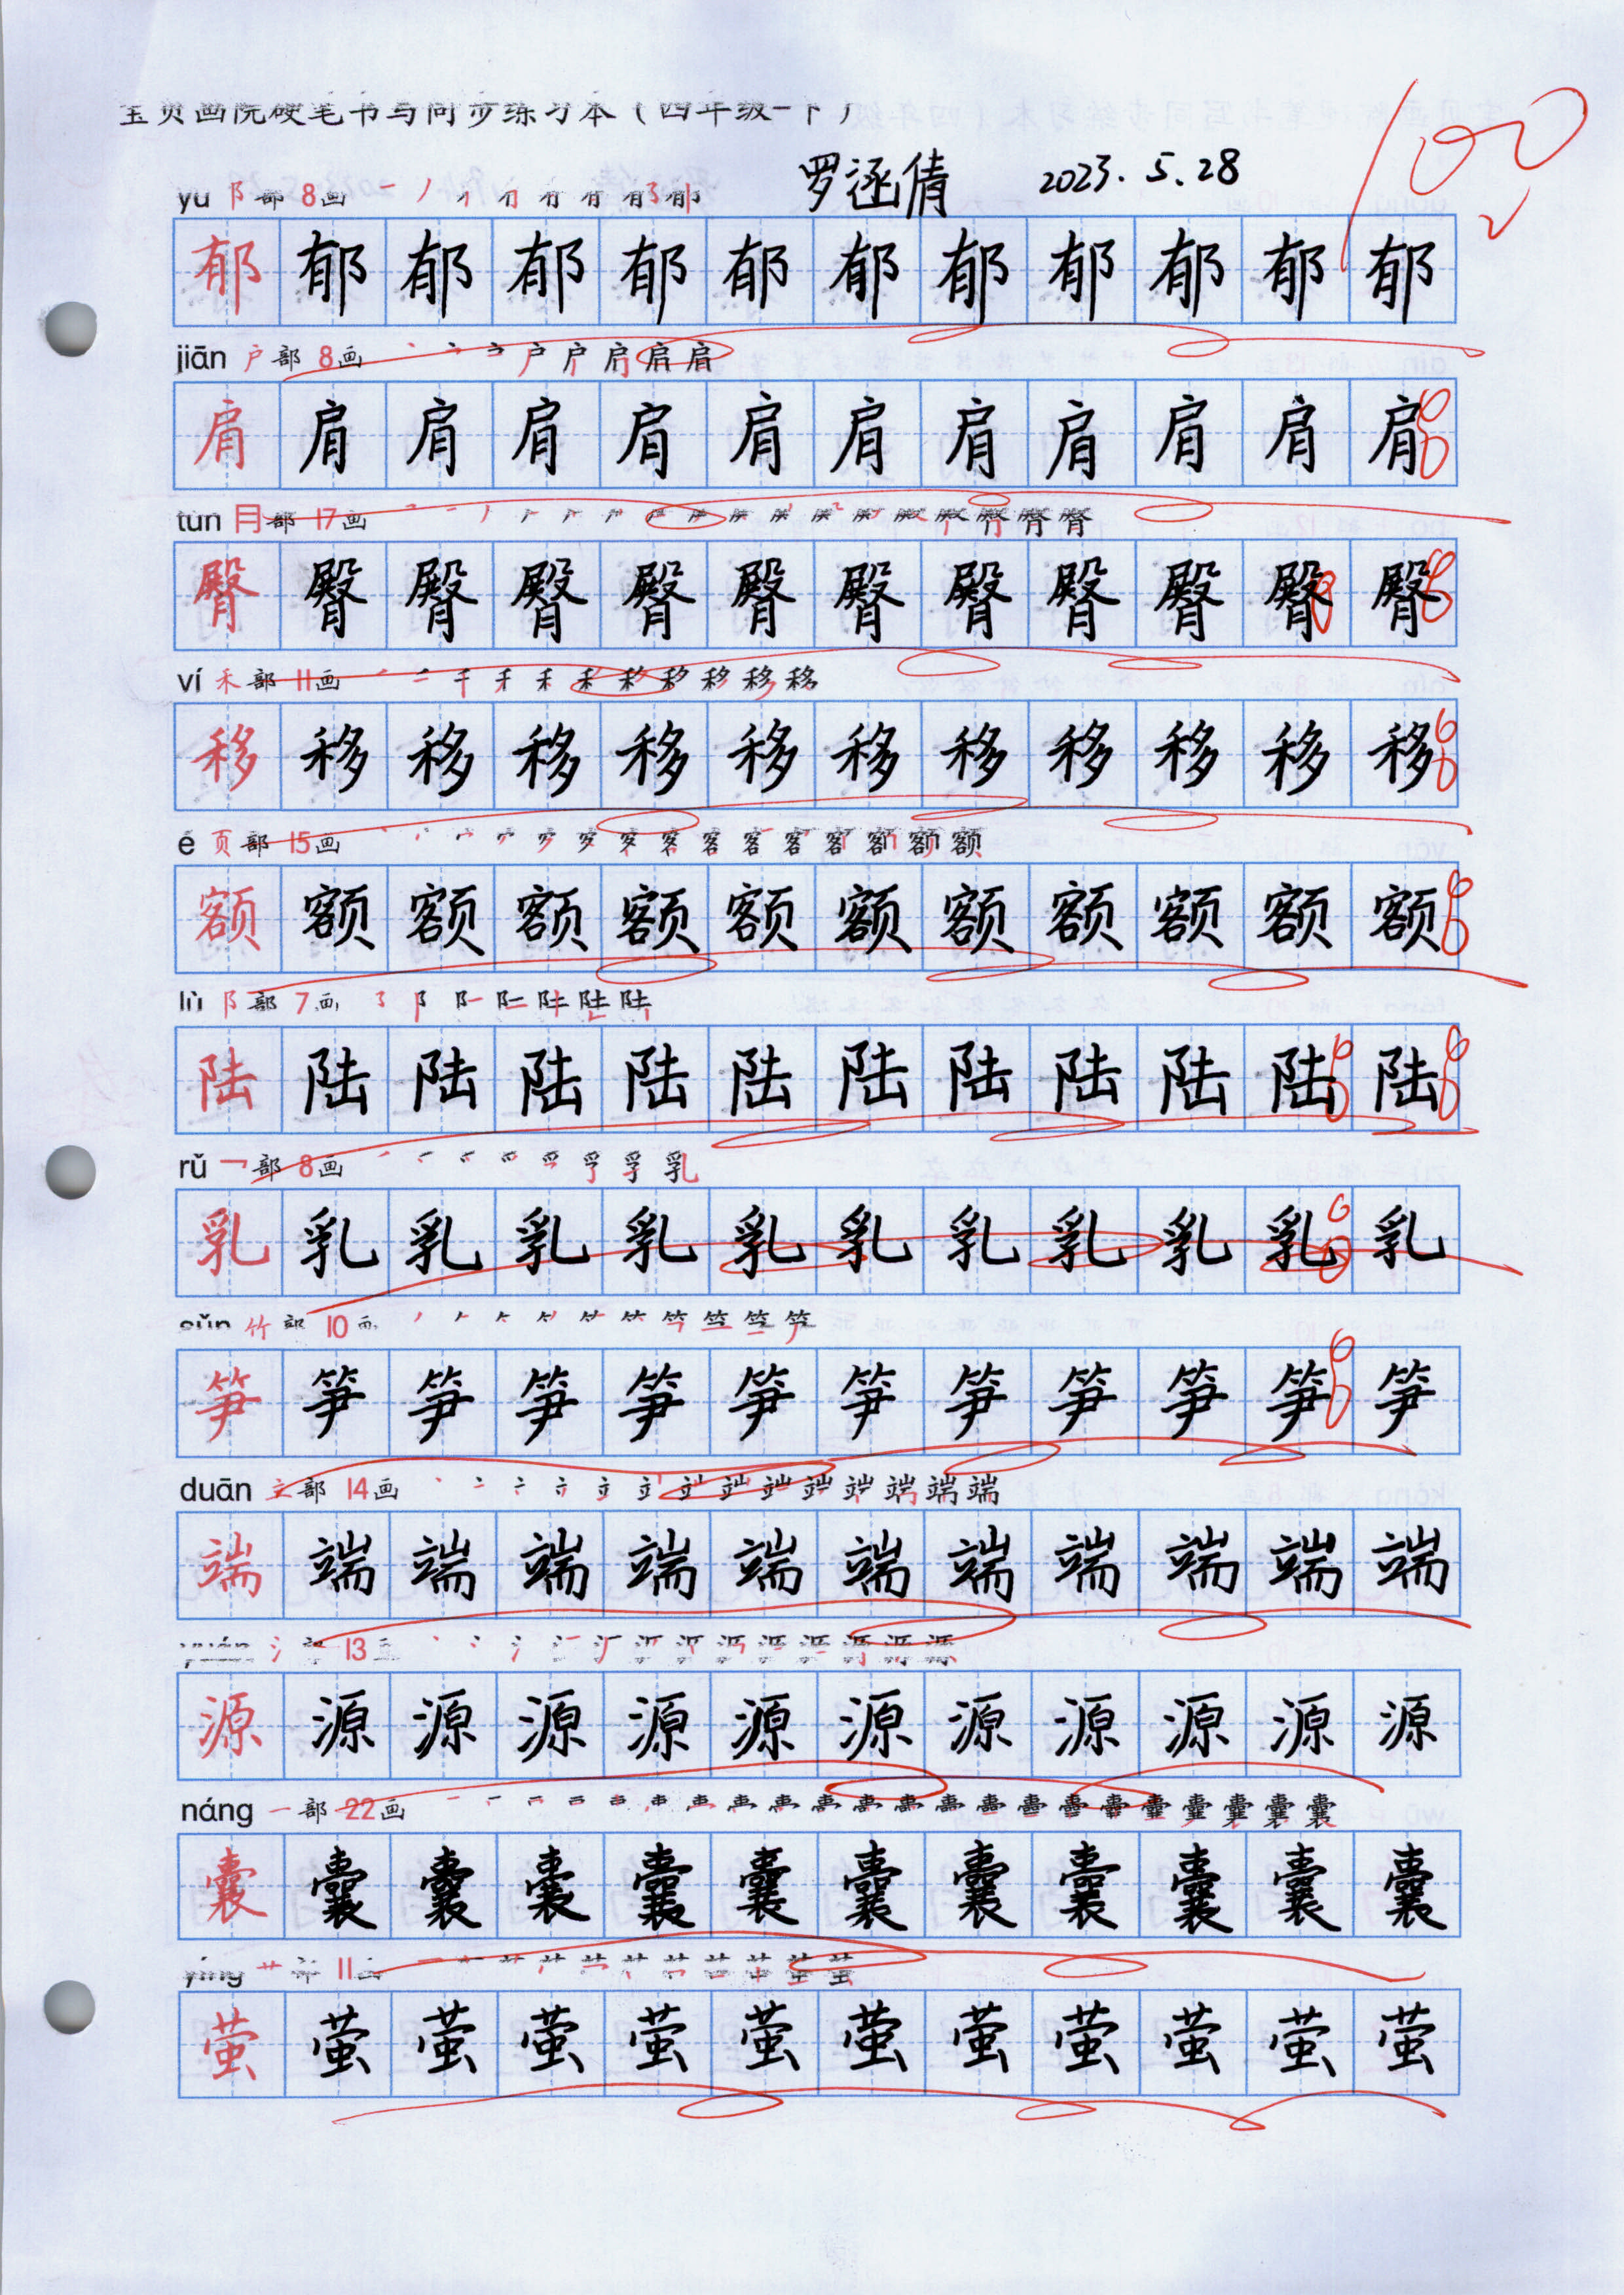 宝贝画院硬笔书写同步练习本（四年级-下）
罗涵倩 2023.5.28
100
yu 阝部 8画
郁 郁 郁 郁 郁 郁 郁 郁 郁 郁 郁 郁
jiān 户部 8画
肩 肩 肩 肩 肩 肩 肩 肩 肩 肩 肩 肩
tún 月部 17画
臀 臀 臀 臀 臀 臀 臀 臀 臀 臀 臀 臀
yí 禾部 11画
移 移 移 移 移 移 移 移 移 移 移 移
é 页部 15画
额 额 额 额 额 额 额 额 额 额 额 额
lù 阝部 7画
陆 陆 陆 陆 陆 陆 陆 陆 陆 陆 陆 陆
rǔ 乛部 8画
乳 乳 乳 乳 乳 乳 乳 乳 乳 乳 乳 乳
sǔn 竹部 10画
笋 笋 笋 笋 笋 笋 笋 笋 笋 笋 笋 笋
duān 立部 14画
端 端 端 端 端 端 端 端 端 端 端 端
yuán 氵部 13画
源 源 源 源 源 源 源 源 源 源 源 源
náng 一部 22画
囊 囊 囊 囊 囊 囊 囊 囊 囊 囊 囊 囊
yíng 艹部 11画
萤 萤 萤 萤 萤 萤 萤 萤 萤 萤 萤 萤